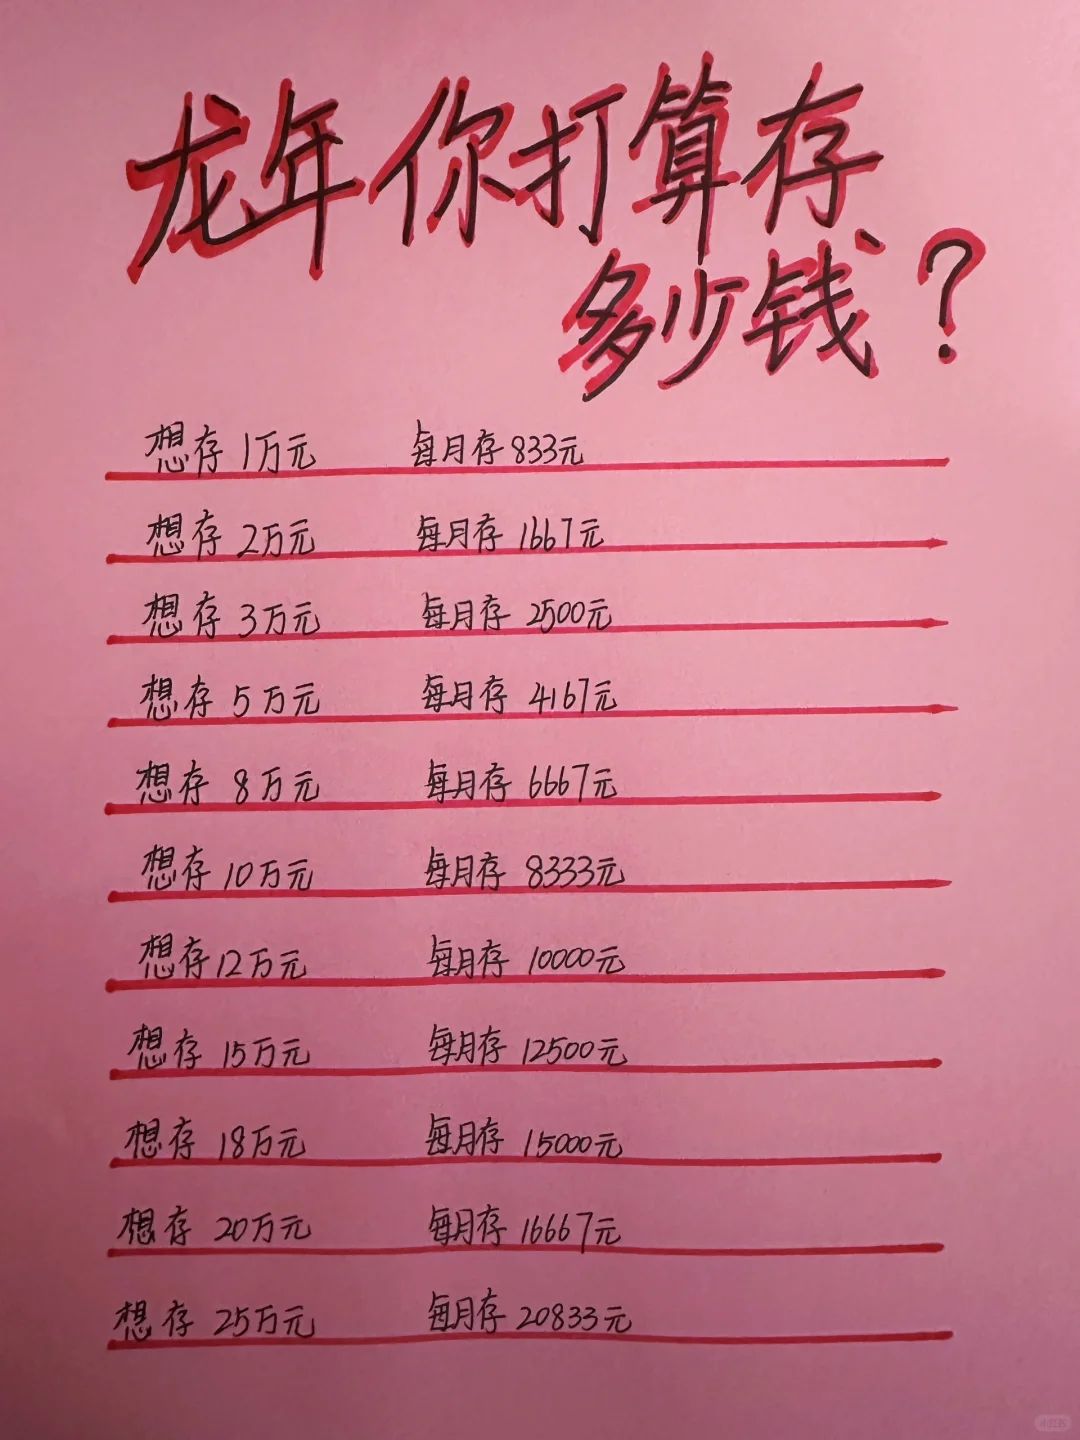 龙年你打算存
多少钱?
想存1万元 每月存833元
想存2万元 每月存1667元
想存3万元 每月存2500元
想存5万元 每月存4167元
想存8万元 每月存6667元
想存10万元 每月存8333元
想存12万元 每月存10000元
想存15万元 每月存12500元
想存18万元 每月存15000元
想存20万元 每月存16667元
想存25万元 每月存20833元
小红书